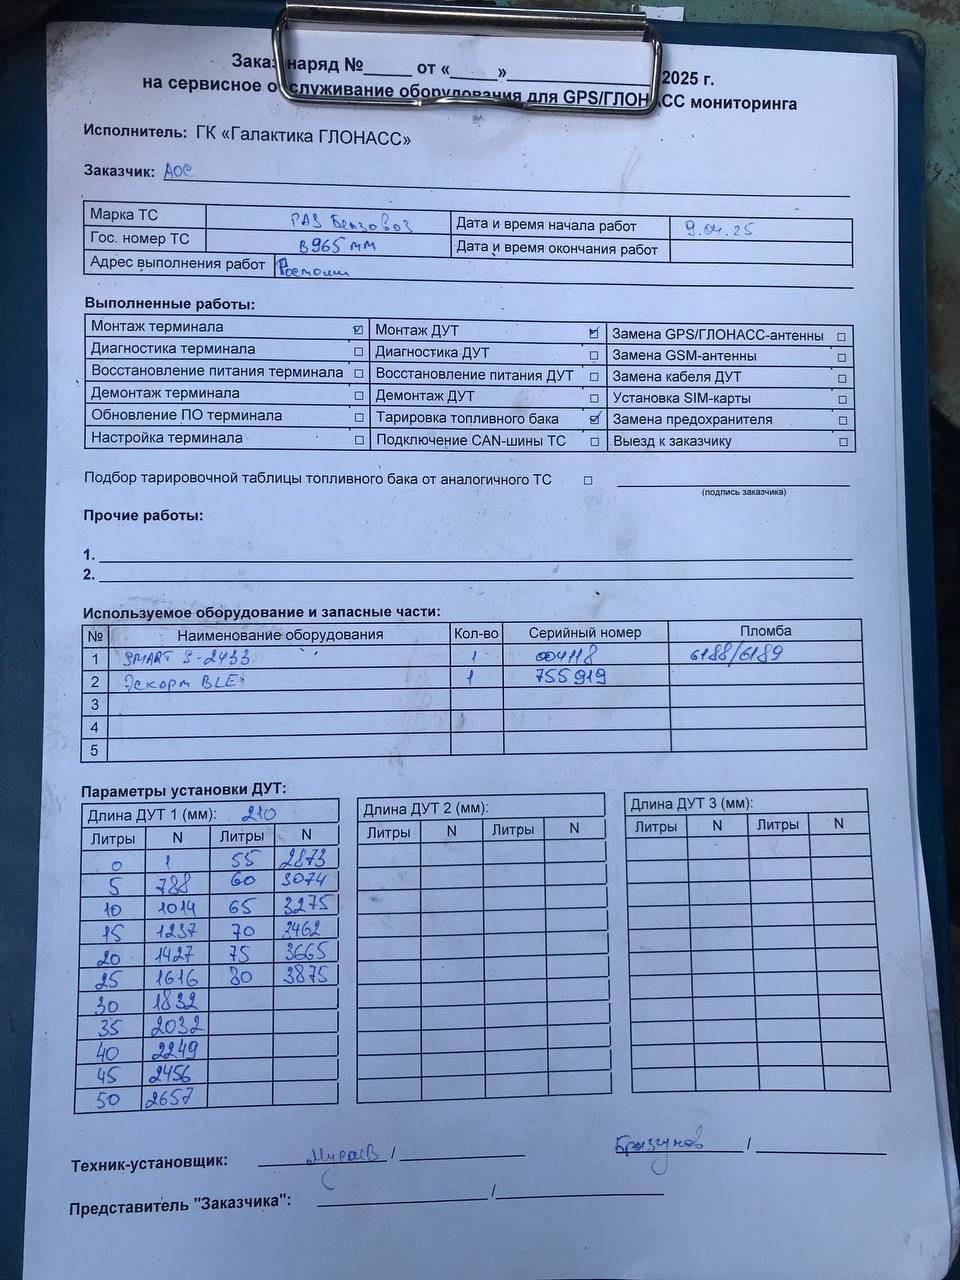 Заказ-наряд №_____ от «_____»________________2025 г.
на сервисное обслуживание оборудования для GPS/ГЛОНАСС мониторинга
Исполнитель: ГК «Галактика ГЛОНАСС»
Заказчик: АОС
Марка ТС ГАЗ Бензовоз Дата и время начала работ 9.04.25
Гос. номер ТС В965мм Дата и время окончания работ
Адрес выполнения работ
Выполненные работы:
Монтаж терминала ☑ Монтаж ДУТ ☑ Замена GPS/ГЛОНАСС-антенны ☐
Диагностика терминала ☐ Диагностика ДУТ ☐ Замена GSM-антенны ☐
Восстановление питания терминала ☐ Восстановление питания ДУТ ☐ Замена кабеля ДУТ ☐
Демонтаж терминала ☐ Демонтаж ДУТ ☐ Установка SIM-карты ☐
Обновление ПО терминала ☐ Тарировка топливного бака ☑ Замена предохранителя ☐
Настройка терминала ☐ Подключение CAN-шины ТС ☐ Выезд к заказчику ☐
Подбор тарировочной таблицы топливного бака от аналогичного ТС ☐
(подпись заказчика)
Прочие работы:
1.
2.
Используемое оборудование и запасные части:
№ Наименование оборудования Кол-во Серийный номер Пломба
1 SMART S-2433 1 004118 6188/6189
2 Эскорт BLE 1 755919
3
4
5
Параметры установки ДУТ:
Длина ДУТ 1 (мм): 210 Длина ДУТ 2 (мм): Длина ДУТ 3 (мм):
Литры N Литры N Литры N Литры N Литры N Литры N
0 1 55 2873
5 788 60 3074
10 1014 65 3275
15 1237 70 3462
20 1427 75 3665
25 1616 80 3875
30 1832
35 2032
40 2249
45 2456
50 2657
Техник-установщик: Мусаев / Бразунов /
Представитель "Заказчика": /